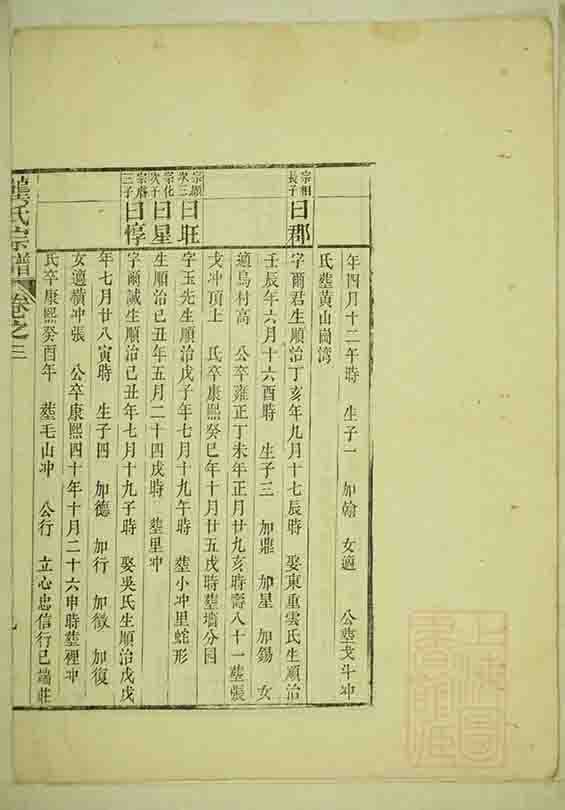 年四月十二午時 生子一 加翰 女適 公塟戈斗冲
氏塟黃山崗湾
宗相長子 曰郡 字爾君生順治丁亥年九月十七辰時 娶東重雲氏生順治
壬辰年六月十六酉時 生子三 加鼎 加星 加錫 女
適烏村高 公卒雍正丁未年正月廿九亥時壽八十一塟張
戈冲頂上 氏卒康熙癸巳年十月廿五戌時塟墳分园
次三 曰班 字玉先生順治戊子年七月十九午時 塟小冲里蛇形
宗化次子 曰星 生順治己丑年五月二十四戌時 塟里冲
三子 曰惇 字爾誠生順治己丑年七月十九子時 娶吳氏生順治戊戌
年七月廿八寅時 生子四 加德 加行 加徵 加復
女適橫冲張 公卒康熙四十年十月二十六申時塟裡冲
氏卒康熙癸酉年 塟毛山冲 公行 立心忠信行己端莊
氏宗譜 卷之三 九